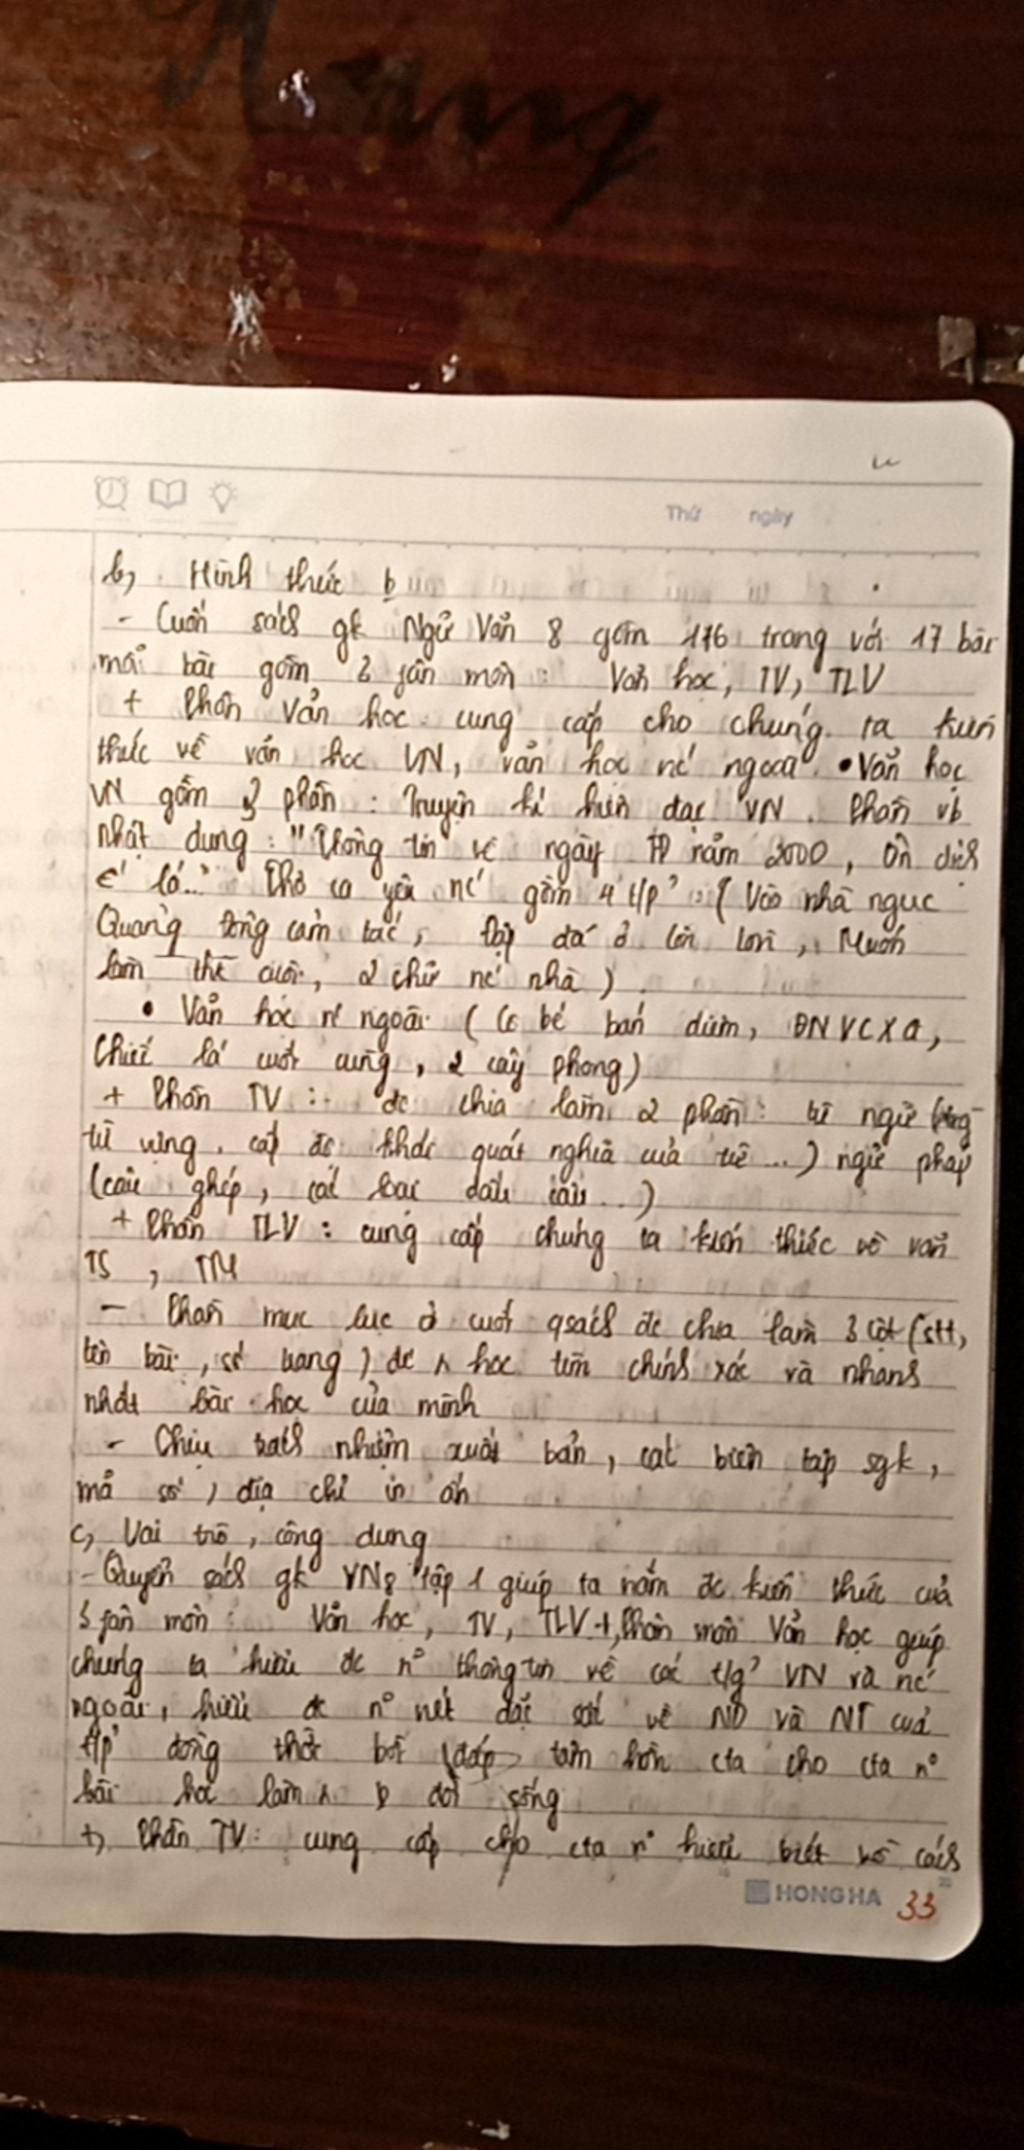 Hưng
Thứ ngày
b, Hình thức b
- Cuốn sách gk Ngữ Văn 8 gồm 176 trang với 17 bài
mỗi bài gồm 3 fân môn : Văn học, TV, TLV
+ Phần Văn học cung cấp cho chúng ta kiến
thức về văn học VN, văn học nc' ngoài. • Văn học
VN gồm 3 phần : Truyện kí hiện đại VN. Phần vb
nhật dụng : "Thông tin về ngày TĐ năm 2000, Ôn dịch
lá..." Thơ ca yêu nc' gồm 4 t/p' : ( Vào nhà ngục
Quảng Đông cảm tác, Đập đá ở Côn Lôn, Muốn
làm thế cuội, 2 chữ nc' nhà )
• Văn học nc' ngoài ( Cô bé bán diêm, ĐNVCXG,
Chiếc lá cuối cùng, 2 cây phong)
+ Phần TV : đc chia làm 2 phần : từ ngữ
từ vựng, cấp độ khái quát nghĩa của từ ...) ngữ pháp
(câu ghép, các loại dấu câu ...)
+ Phần TLV : cung cấp chúng ta kiến thức về văn
TS, TM
- Phần mục lục ở cuối qsách đc chia làm 3 cột (stt,
tên bài, số trang ) để học tìm chính xác và nhanh
nhất bài học của mình
- Chịu trách nhiệm xuất bản, các biên tập sgk,
mã số, địa chỉ in ấn
c, Vai trò, công dụng
- Quyển sách gk VN8 tập 1 giúp ta nắm đc kiến thức của
3 fân môn : Văn học, TV, TLV +, Phân môn Văn học giúp
chúng ta hiểu đc n° thông tin về các t/g' VN và nc'
ngoài, hiểu đc n° nét đặc sắc về ND và NT của
t/p' đồng thời bồi đắp tâm hồn cta cho cta n°
bài học làm b đời sống
+, Phần TV : cung cấp cho cta n° hiểu biết về cách
HONG HA 33